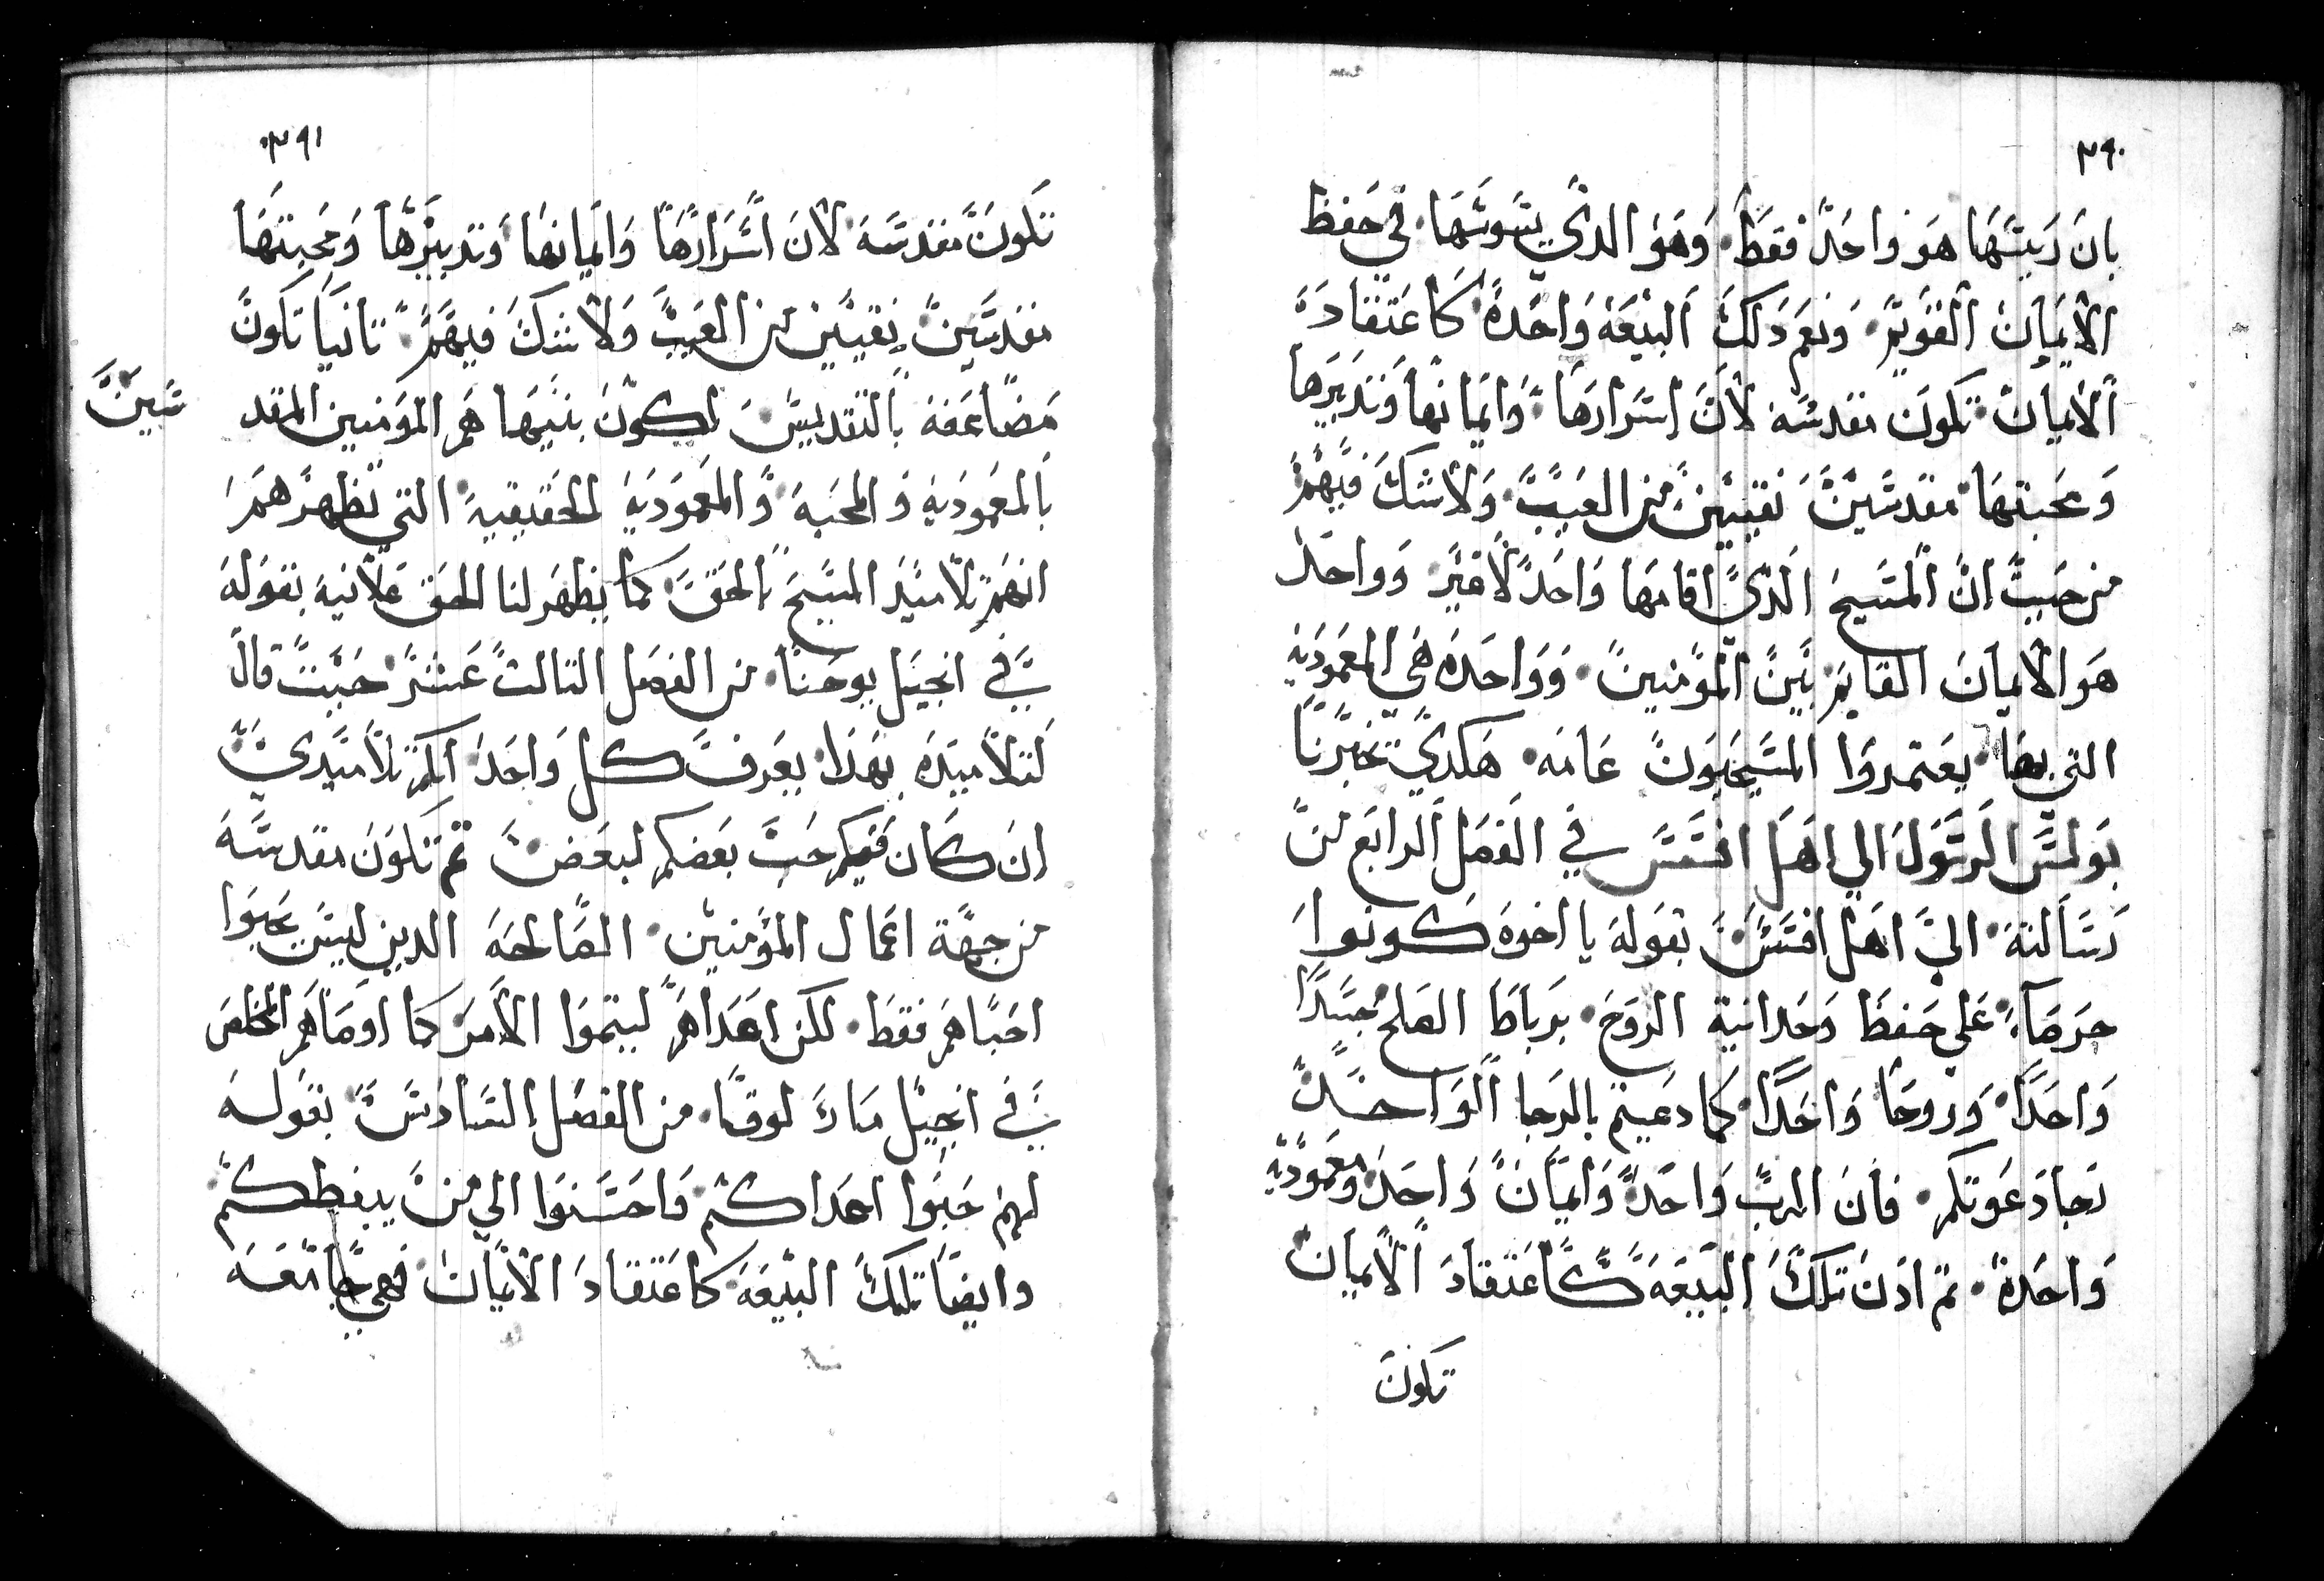 ٣٩٠
بان ريسها هو واحد فقط وهو الدي يسوسها في حفظ
الايمان القويم ونعم دلك البيعه واحدة كاعتقاد
الايمان تكون مقدسه لان اسرارها وايمانها وتدبيرها
ومحبتها مقدسين نقيين من العيب ولا شك فيهم
من حيت ان المسيح الدي اقامها واحد لا غير وواحد
هو الايمان القايم بين المومنين وواحده هي المعموديه
التي بها يعتمدوا المسيحيون عامه هكدي تخبرنا
بولس الرسول الي اهل افسس في الفصل الرابع من
رسالته الي اهل افسس بقوله يا اخوه كونوا
حرصا علي حفظ وحدانية الروح برباط الصلح جسدا
واحدا وروحا واحدا كما دعيتم بالرجا الواحد
رجا دعوتكم فان الرب واحد وايمان واحد ومعموديه
واحدة تم ادن تلك البيعه كاعتقاد الايمان
تكون
٣٩١
تكون مقدسه لان اسرارها وايمانها وتدبيرها ومحبتها
مقدسين نقيين من العيب ولا شك فيهم تانيا تكون
مضاعفه بالتقديس لكون بنيها هم المومنين المقد سين
بالمعموديه والمحبه والمعموديه الحقيقيه التي تظهرهم
انهم تلاميد المسيح بالحق كما يظهر لنا الحق علانيه بقوله
في انجيل يوحنا من الفصل التالت عشر حيت قال
لتلاميده بهدا يعرف كل واحد انكم تلاميدي
ان كان فيكم حب بعضكم لبعض تم تكون مقدسه
من جهة اعمال المومنين الصالحه الدين ليس يحبوا
احباهم فقط لكن اعداهم ليتموا الامر كما اوصاهم المخلص
في انجيل مار لوقا من الفصل السادس بقوله
لهم حبوا اعداكم واحسنوا الي من يبغضكم
وايضا تلك البيعه كاعتقاد الايمان فهي جامعه